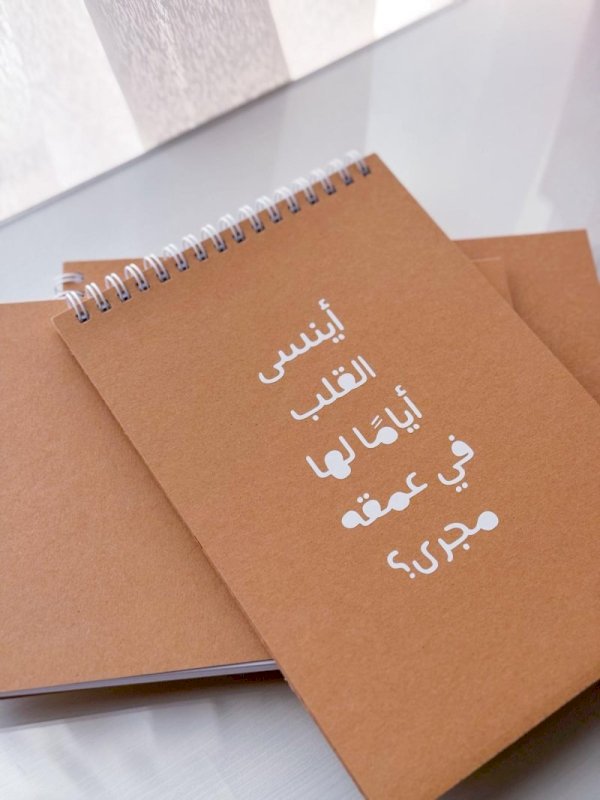 أينسى
القلب
أيامًا لها
في عمقه
مجرى؟